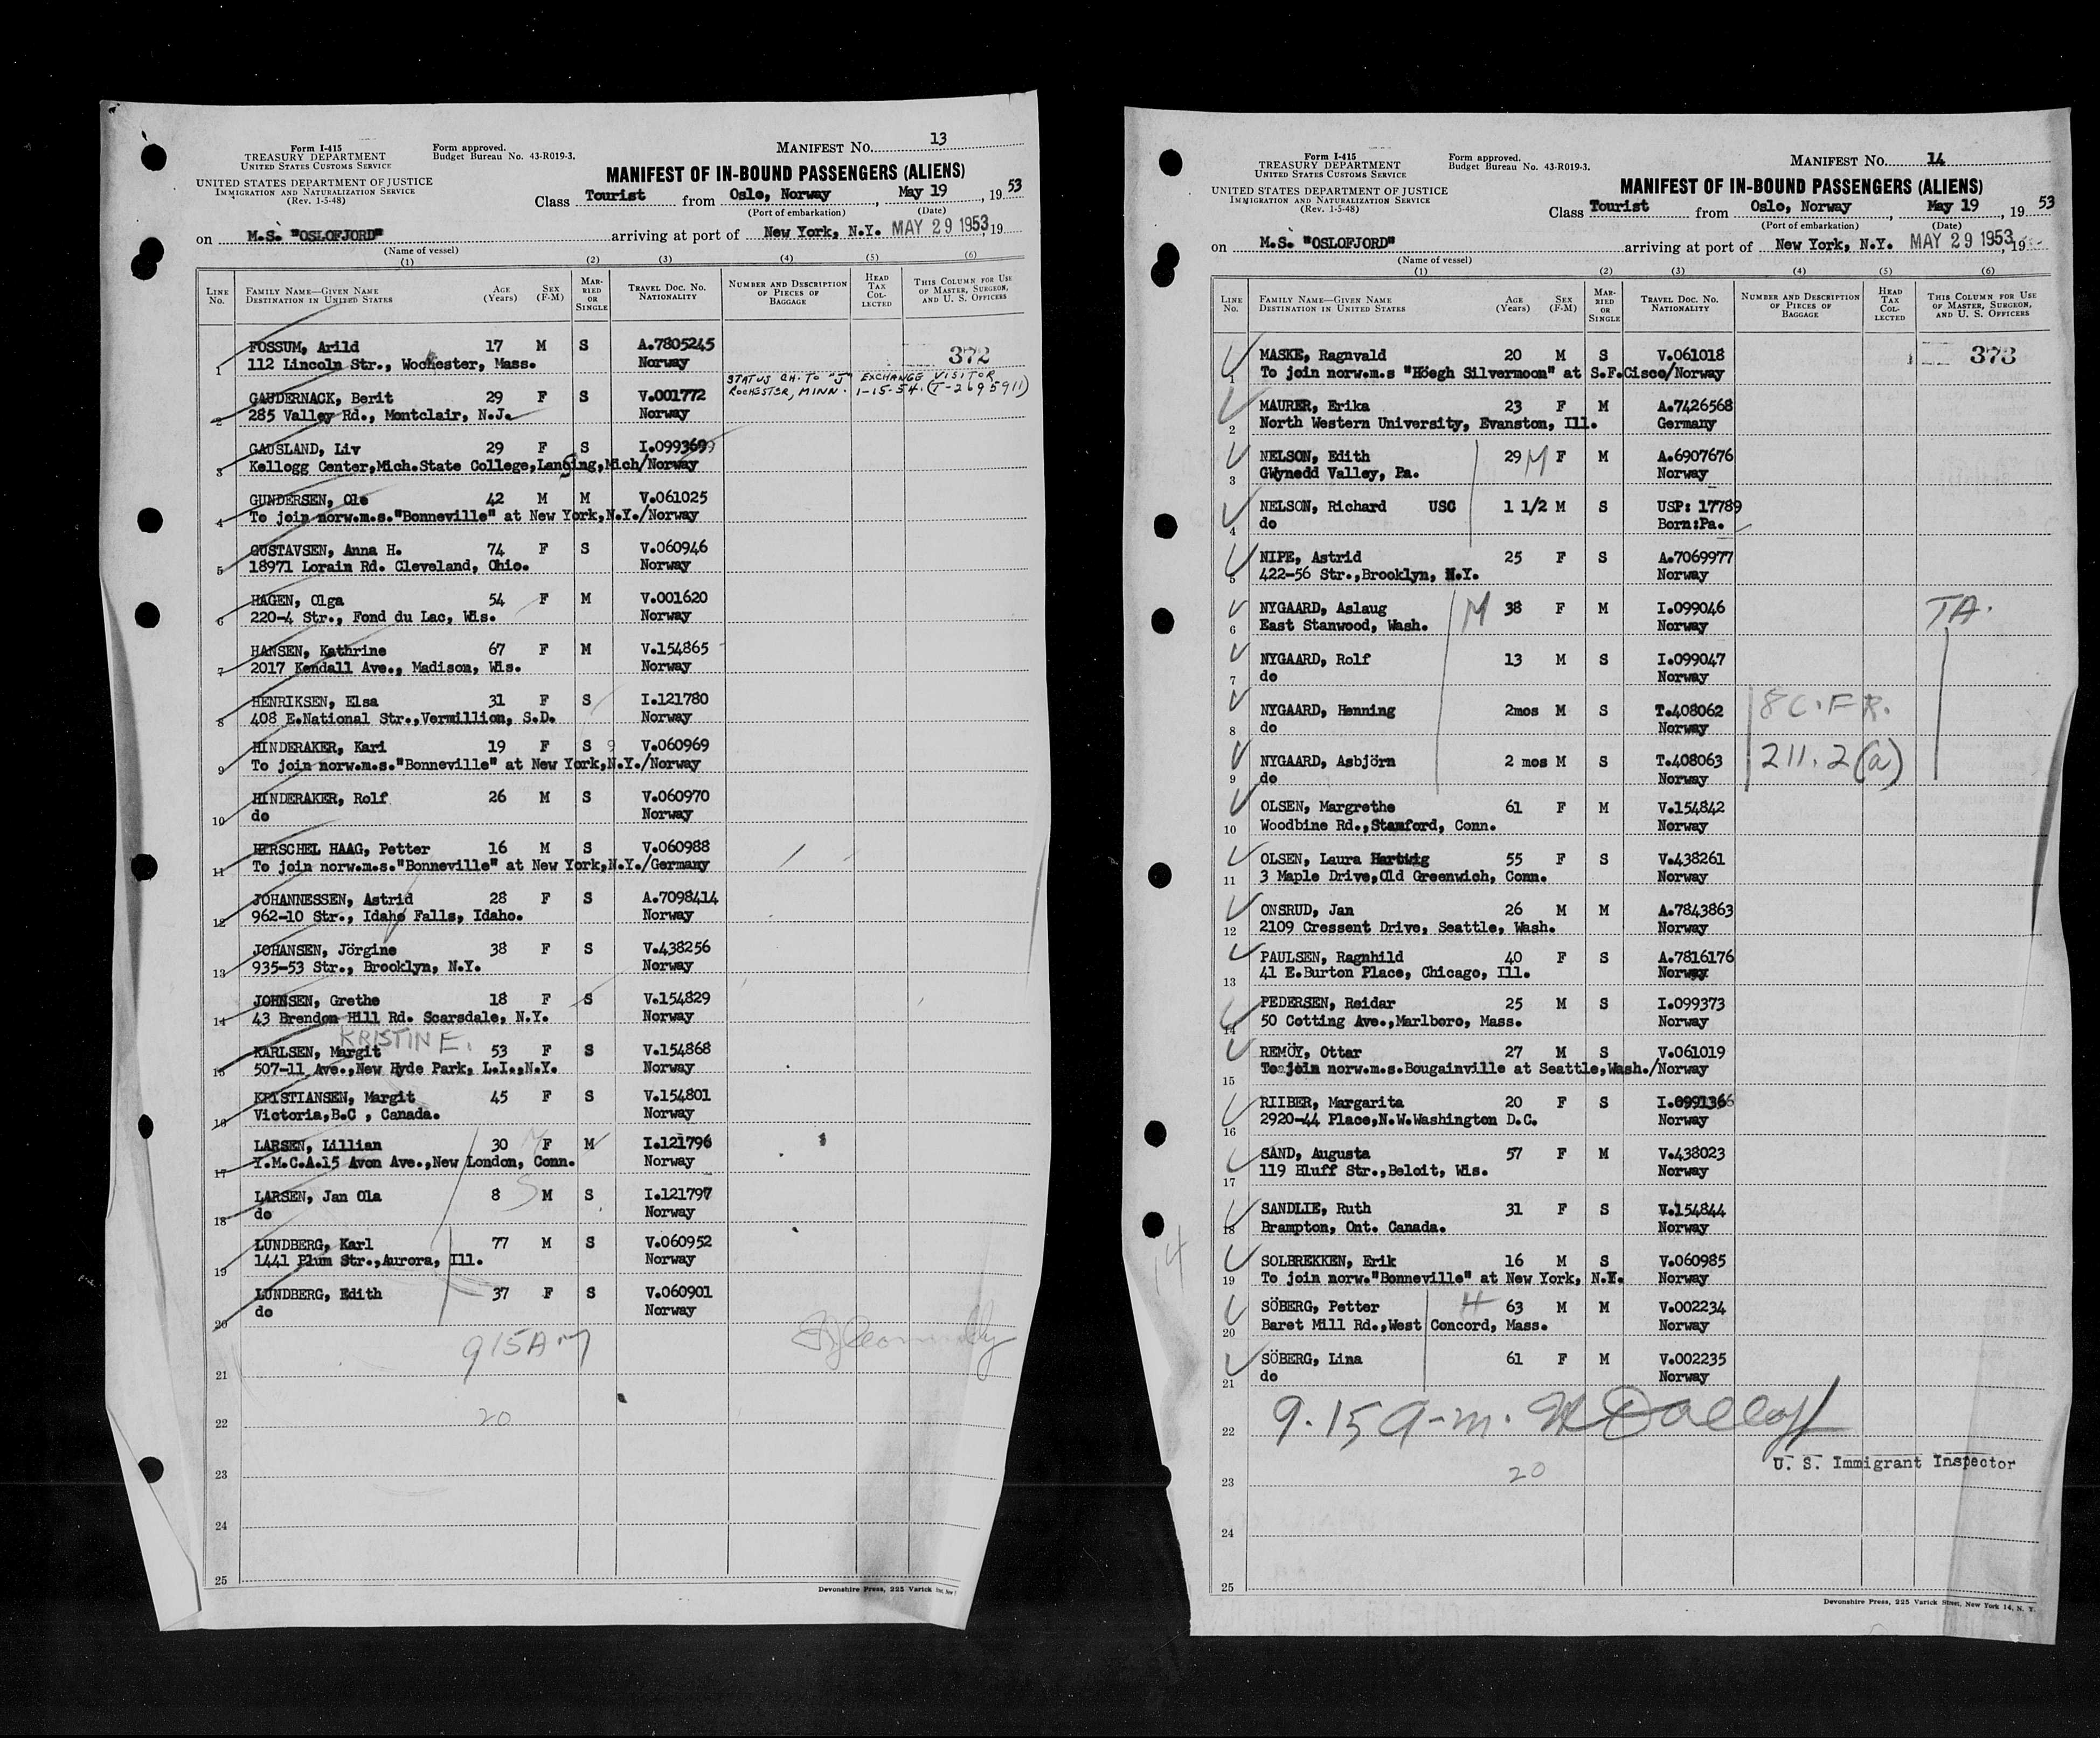 Form I-415
TREASURY DEPARTMENT
UNITED STATES CUSTOMS SERVICE
UNITED STATES DEPARTMENT OF JUSTICE
IMMIGRATION AND NATURALIZATION SERVICE
(Rev. 1-5-48)
Form approved.
Budget Bureau No. 43-R019-3.
MANIFEST NO. 13
MANIFEST OF IN-BOUND PASSENGERS (ALIENS)
Class Tourist from Oslo, Norway, May 19, 1953
(Port of embarkation) (Date)
on M.S. "OSLOFJORD" arriving at port of New York, N.Y. MAY 29 1953, 19
(Name of vessel)
(1) (2) (3) (4) (5) (6)
LINE No. FAMILY NAME—GIVEN NAME DESTINATION IN UNITED STATES AGE (Years) SEX (F-M) MARRIED OR SINGLE TRAVEL DOC. NO. NATIONALITY NUMBER AND DESCRIPTION OF PIECES OF BAGGAGE HEAD TAX COLLECTED THIS COLUMN FOR USE OF MASTER, SURGEON, AND U. S. OFFICERS
1 FOSSUM, Arild 17 M S A.7805245 372
112 Lincoln Str., Wochester, Mass. Norway
STATUS CH. TO "J" EXCHANGE VISITOR
2 GAUDERNACK, Berit 29 F S V.001772 ROCHESTER, MINN. 1-15-54. (T-2695911)
285 Valley Rd., Montclair, N.J. Norway
3 GAUSLAND, Liv 29 F S I.099369
Kellogg Center,Mich.State College,Lansing,Mich/Norway
4 GUNDERSEN, Ole 42 M M V.061025
To join norw.m.s."Bonneville" at New York,N.Y./Norway
5 GUSTAVSEN, Anna H. 74 F S V.060946
18971 Lorain Rd. Cleveland, Ohio. Norway
6 HAGEN, Olga 54 F M V.001620
220-4 Str., Fond du Lac, Wis. Norway
7 HANSEN, Kathrine 67 F M V.154865
2017 Kendall Ave., Madison, Wis. Norway
8 HENRIKSEN, Elsa 31 F S I.121780
408 E.National Str.,Vermillion, S.D. Norway
9 HINDERAKER, Kari 19 F S 9 V.060969
To join norw.m.s."Bonneville" at New York,N.Y./Norway
10 HINDERAKER, Rolf 26 M S V.060970
do Norway
11 HERSCHEL HAAG, Petter 16 M S V.060988
To join norw.m.s."Bonneville" at New York,N.Y./Germany
12 JOHANNESSEN, Astrid 28 F S A.7098414
962-10 Str., Idaho Falls, Idaho. Norway
13 JOHANSEN, Jörgine 38 F S V.438256
935-53 Str., Brooklyn, N.Y. Norway
14 JOHNSEN, Grethe 18 F S V.154829
43 Brendon Hill Rd. Scarsdale, N.Y. Norway
KRISTINE.
15 KARLSEN, Margit 53 F S V.154868
507-11 Ave.,New Hyde Park, L.I.,N.Y. Norway
16 KRISTIANSEN, Margit 45 F S V.154801
Victoria,B.C , Canada. Norway
17 LARSEN, Lillian 30 F M I.121796
Y.M.C.A.15 Avon Ave.,New London, Conn. Norway
18 LARSEN, Jan Ola 8 M S I.121797
do Norway
19 LUNDBERG, Karl 77 M S V.060952
1441 Plum Str.,Aurora, Ill. Norway
20 LUNDBERG, Edith 37 F S V.060901
do Norway
915 AM
21
22 20
23
24
25
Devonshire Press, 225 Varick
Form I-415
TREASURY DEPARTMENT
UNITED STATES CUSTOMS SERVICE
UNITED STATES DEPARTMENT OF JUSTICE
IMMIGRATION AND NATURALIZATION SERVICE
(Rev. 1-5-48)
Form approved.
Budget Bureau No. 43-R019-3.
MANIFEST NO. 14
MANIFEST OF IN-BOUND PASSENGERS (ALIENS)
Class Tourist from Oslo, Norway, May 19, 1953
(Port of embarkation) (Date)
on M.S. "OSLOFJORD" arriving at port of New York, N.Y. MAY 29 1953, 19
(Name of vessel)
(1) (2) (3) (4) (5) (6)
LINE No. FAMILY NAME—GIVEN NAME DESTINATION IN UNITED STATES AGE (Years) SEX (F-M) MARRIED OR SINGLE TRAVEL DOC. NO. NATIONALITY NUMBER AND DESCRIPTION OF PIECES OF BAGGAGE HEAD TAX COLLECTED THIS COLUMN FOR USE OF MASTER, SURGEON, AND U. S. OFFICERS
1 MASKE, Ragnvald 20 M S V.061018 373
To join norw.m.s "Höegh Silvermoon" at S.F.Cisco/Norway
2 MAURER, Erika 23 F M A.7426568
North Western University, Evanston, Ill. Germany
3 NELSON, Edith 29 M F M A.6907676
GWynedd Valley, Pa. Norway
4 NELSON, Richard USC 1 1/2 M S USP: 17789
do Born:Pa.
5 NIPE, Astrid 25 F S A.7069977
422-56 Str.,Brooklyn, N.Y. Norway
6 NYGAARD, Aslaug M 38 F M I.099046 TA.
East Stanwood, Wash. Norway
7 NYGAARD, Rolf 13 M S I.099047
do Norway
8 NYGAARD, Henning 2mos M S T.408062 8 C.F.R.
do Norway
9 NYGAARD, Asbjörn 2 mos M S T.408063 211.2(a)
do Norway
10 OLSEN, Margrethe 61 F M V.154842
Woodbine Rd.,Stamford, Conn. Norway
11 OLSEN, Laura Hartwig 55 F S V.438261
3 Maple Drive,Old Greenwich, Conn. Norway
12 ONSRUD, Jan 26 M M A.7843863
2109 Cressent Drive, Seattle, Wash. Norway
13 PAULSEN, Ragnhild 40 F S A.7816176
41 E.Burton Place, Chicago, Ill. Norway
14 PEDERSEN, Reidar 25 M S I.099373
50 Cotting Ave.,Marlboro, Mass. Norway
15 REMÖY, Ottar 27 M S V.061019
To join norw.m.s.Bougainville at Seattle,Wash./Norway
16 RIIBER, Margarita 20 F S I.099136
2920-44 Place,N.W.Washington D.C. Norway
17 SAND, Augusta 57 F M V.438023
119 Bluff Str.,Beloit, Wis. Norway
18 SANDLIE, Ruth 31 F S V.154844
Brampton, Ont. Canada. Norway
19 SOLBREKKEN, Erik 16 M S V.060985
To join norw."Bonneville" at New York, N.Y. Norway
20 SÖBERG, Petter H 63 M M V.002234
Baret Mill Rd.,West Concord, Mass. Norway
21 SÖBERG, Lina 61 F M V.002235
do Norway
22 9.15 a-m.
U. S. Immigrant Inspector
23 20
24
25
Devonshire Press, 225 Varick Street, New York 14, N. Y.
14